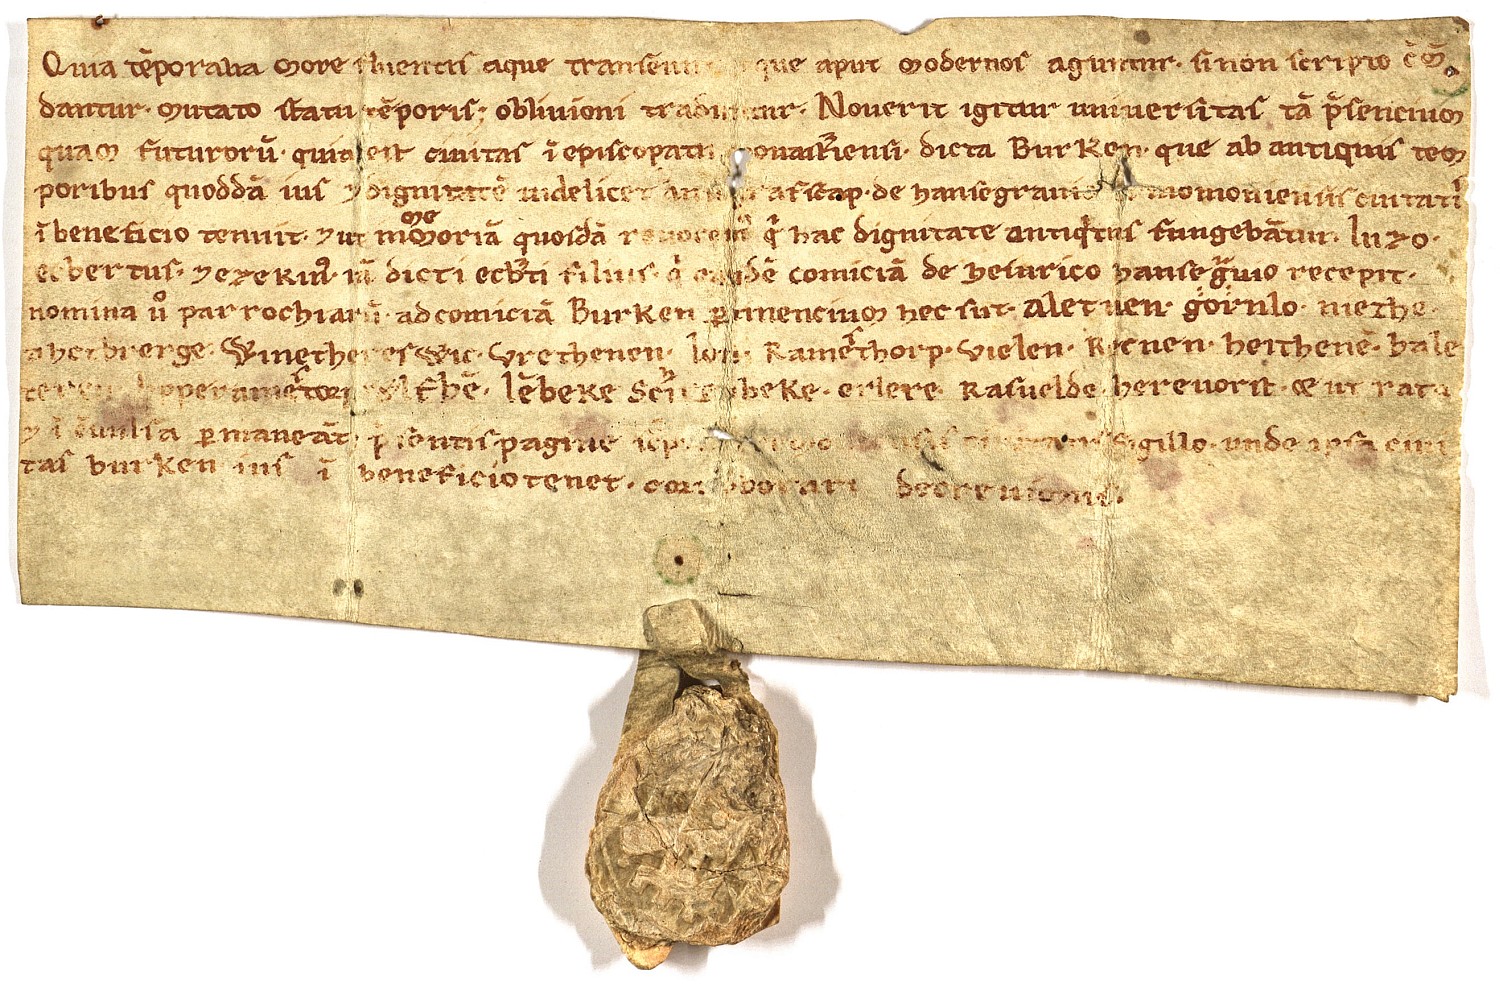 Quia tēporalia more fluentis aque transeun que aput modernos aguntur· si non scripto cōmē
dantur· mutato statu tēporis; oblivioni traduntur· Noverit igitur universitas tā p̄sencium
quam futurorū· quia est civitas ī episcopatu monast̄iensi· dicta Burken· que ab antiquis tem
poribus quoddā ius ⁊ dignitatē videlicet de hansegravio civitatis
ī beneficio tenuit· ⁊ ut memoriā quosdā q̄ hac dignitate antiq̇tus fungebātur· luzo·
ecbertus· ⁊ ezekin᷒· iā dicti ecb̄ti filius· q̇ eandē comiciā de heinrico hanseg̃vio recepit·
nomina v̊ parrochiarū· ad comiciā Burken ꝑtinencium hec sūt· Aletuen· gȯrnlo· niethe·
Winetheresuuic· Vrethenen· lon· Ramesthorp· Vielen· Recnen· heithenē· hale
lēbeke Sc̄irenbeke· erlere· Rasuelde· herevorst· & ut rata
⁊ ī cōvulsa ꝑmaneāt· p̄sentis pagine sigillo· unde ipsa civi
tas burken ius ī beneficio tenet· corroborari decrevimus·